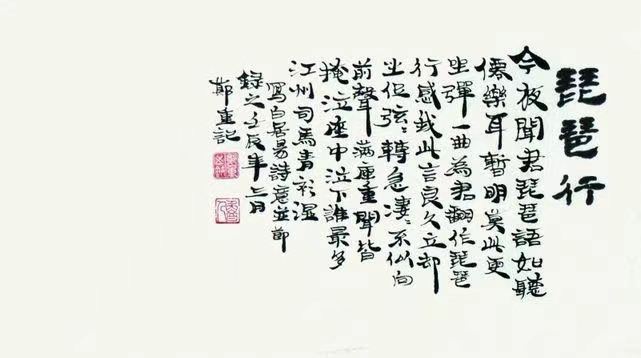 琵琶行
今夜聞君琵琶語如聽
僊樂耳暫明莫此更
坐彈一曲為君翻作琵琶
行感我此言良久立却
坐促弦〻轉急凄〻不似向
前聲滿座重聞皆
掩泣座中泣下誰最多
江州司馬青衫湿
寫白居易詩意並節
錄之壬辰年三月
鄭重記